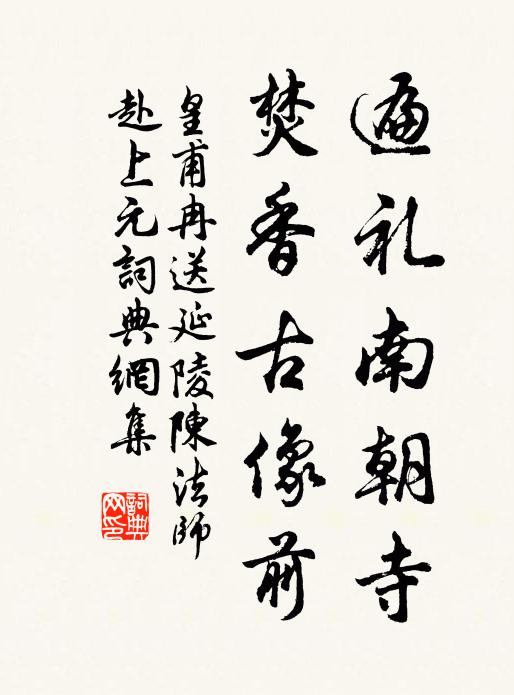 遍礼南朝寺
焚香古像前
皇甫冉送延陵陳法師
赴上元詞典網集
詞典网印